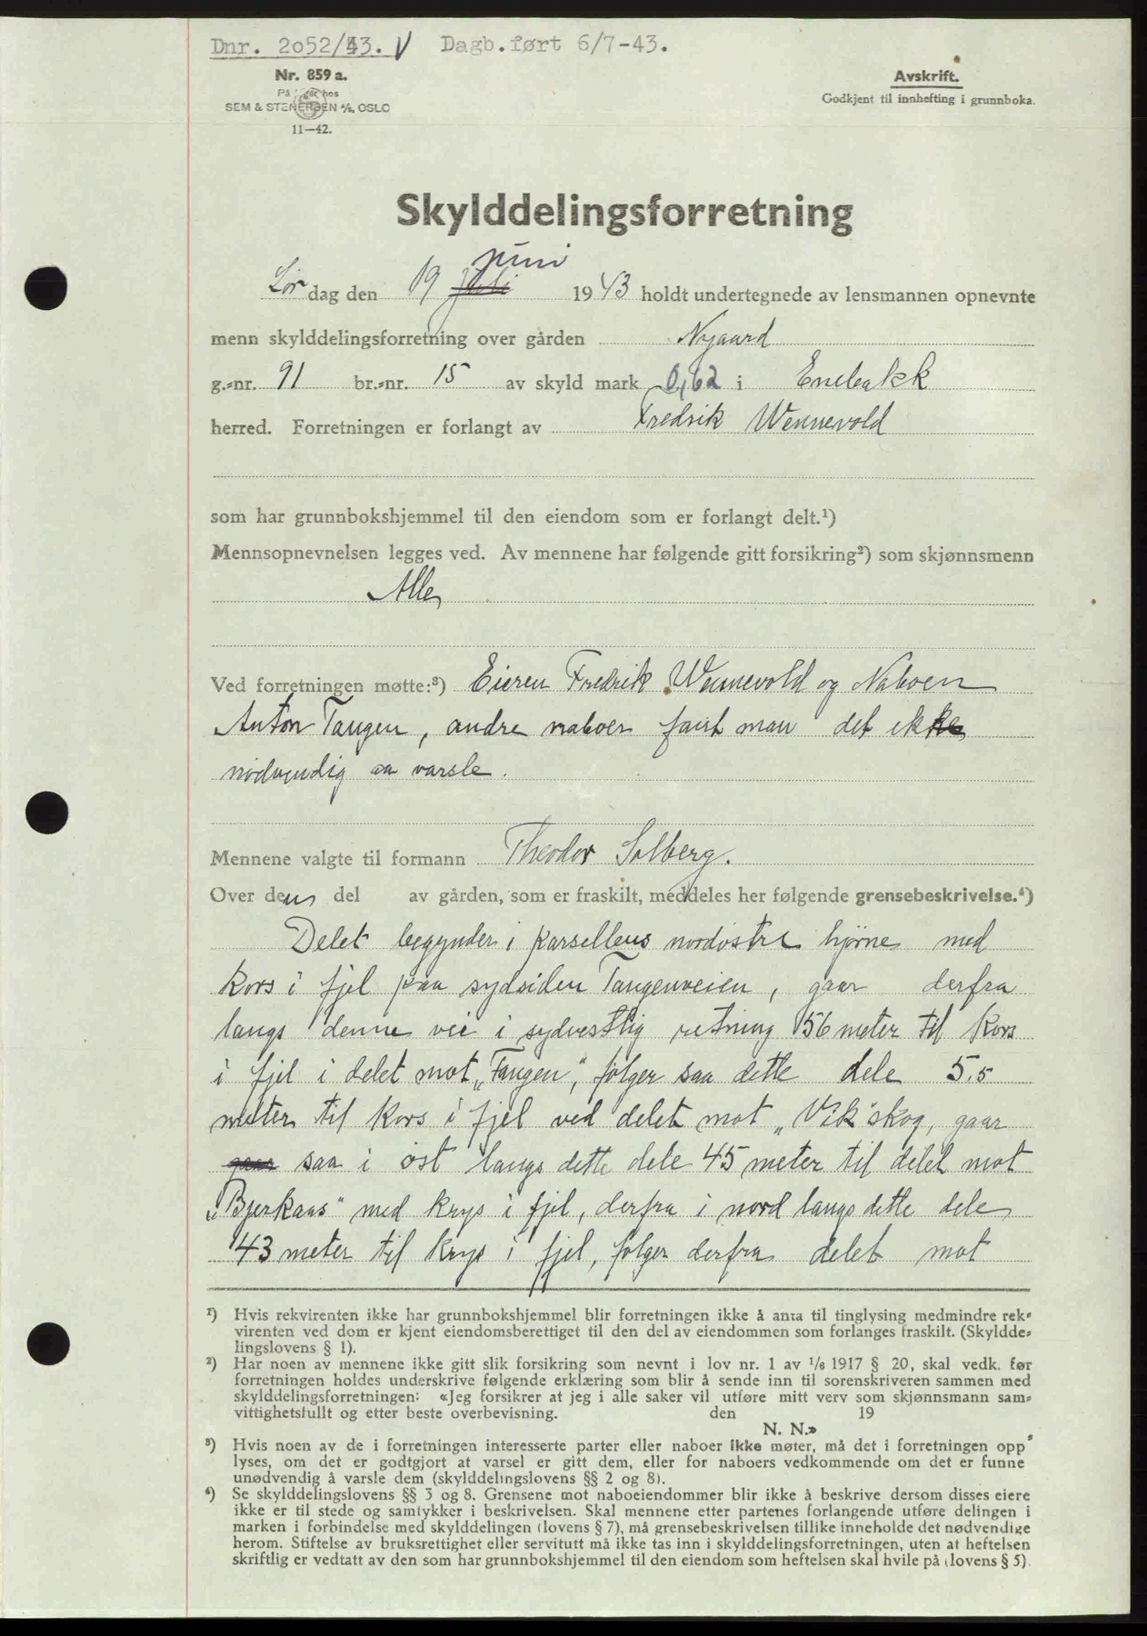 Dnr. 2052/43. V Dagb. ført 6/7-43.
Nr. 859 a.
På lager hos
SEM & STENERSEN A/S, OSLO
11—42.
Avskrift.
Godkjent til innhefting i grunnboka.
Skylddelingsforretning
juni
Lør dag den 19 juli 1943 holdt undertegnede av lensmannen opnevnte
menn skylddelingsforretning over gården Nygaard
g.-nr. 91 br.-nr. 15 av skyld mark 0,62 i Enebakk
herred. Forretningen er forlangt av Fredrik Wennevold
som har grunnbokshjemmel til den eiendom som er forlangt delt.¹)
Mennsopnevnelsen legges ved. Av mennene har følgende gitt forsikring²) som skjønnsmenn
Alle
Ved forretningen møtte:³) Eieren Fredrik Wennevold og Naboen
Anton Tangen, andre naboer fant man det ikke
nødvendig aa varsle.
Mennene valgte til formann Theodor Solberg.
Over dens del av gården, som er fraskilt, meddeles her følgende grensebeskrivelse.⁴)
Delet begynder i parsellens nordøstre hjørne med
kors i fjel paa sydsiden Tangenveien, gaar derfra
langs denne vei i sydvestlig retning 56 meter til kors
i fjel i delet mot „Tangen", følger saa dette dele 5.5
meter til kors i fjel ved delet mot „Vik" skog, gaar
gaar saa i øst langs dette dele 45 meter til delet mot
„Bjerkaas" med krys i fjel, derfra i nord langs dette dele
43 meter til krys i fjel, følger derfra delet mot
¹) Hvis rekvirenten ikke har grunnbokshjemmel blir forretningen ikke å anta til tinglysing medmindre rek-
virenten ved dom er kjent eiendomsberettiget til den del av eiendommen som forlanges fraskilt. (Skyldde-
lingslovens § 1).
²) Har noen av mennene ikke gitt slik forsikring som nevnt i lov nr. 1 av 1/6 1917 § 20, skal vedk. før
forretningen holdes underskrive følgende erklæring som blir å sende inn til sorenskriveren sammen med
skylddelingsforretningen: «Jeg forsikrer at jeg i alle saker vil utføre mitt verv som skjønnsmann sam-
vittighetsfullt og etter beste overbevisning. den 19
N. N.»
³) Hvis noen av de i forretningen interesserte parter eller naboer ikke møter, må det i forretningen opp
lyses, om det er godtgjort at varsel er gitt dem, eller for naboers vedkommende om det er funne
unødvendig å varsle dem (skylddelingslovens §§ 2 og 8).
⁴) Se skylddelingslovens §§ 3 og 8. Grensene mot naboeiendommer blir ikke å beskrive dersom disses eiere
ikke er til stede og samtykker i beskrivelsen. Skal mennene etter partenes forlangende utføre delingen i
marken i forbindelse med skylddelingen (lovens § 7), må grensebeskrivelsen tillike inneholde det nødvendige
herom. Stiftelse av bruksrettighet eller servitutt må ikke tas inn i skylddelingsforretningen, uten at heftelsen
skriftlig er vedtatt av den som har grunnbokshjemmel til den eiendom som heftelsen skal hvile på (lovens § 5).